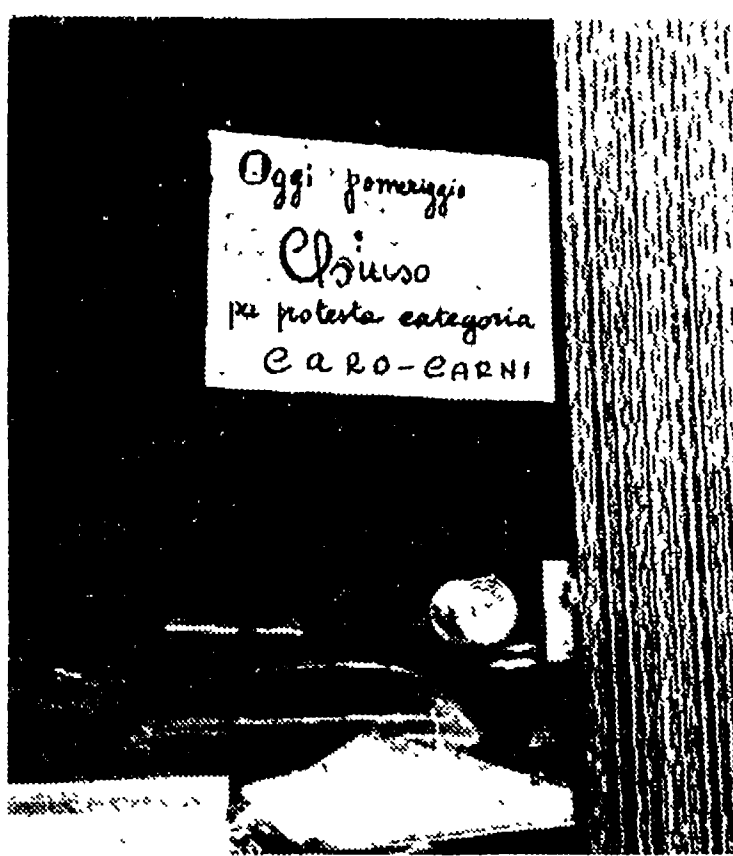 Oggi pomeriggio
Chiuso
per protesta categoria
CARO-CARNI